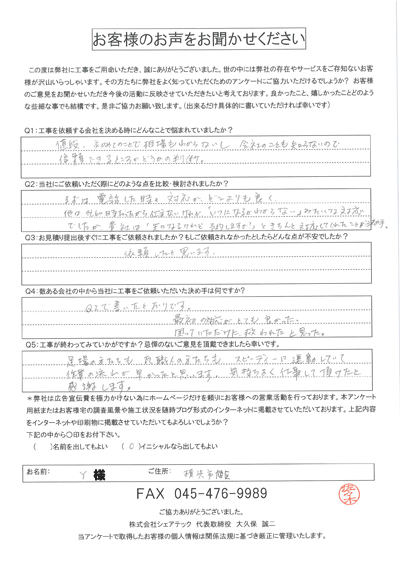 お客様のお声をお聞かせください
この度は弊社に工事をご用命いただき、誠にありがとうございました。世の中には弊社の存在やサービスをご存知ないお客
様が沢山いらっしゃいます。その方たちに弊社をよく知っていただくためのアンケートにご協力いただけるでしょうか？ お客様
のご意見をお聞かせいただき今後の活動に反映させていただきたいと考えております。良かったこと、嬉しかったことどのよう
な些細な事でも結構です。是非ご協力お願い致します。(出来るだけ具体的に書いていただければ幸いです)
Q1:工事を依頼する会社を決める時にどんなことで悩まれていましたか？
値段、初めてのことで相場もわからないし、会社のことも知らないので
信頼できるところかどうかの判断。
Q2:当社にご依頼いただく際にどのような点を比較・検討されましたか？
まずは電話した時の対応がどこよりも良く、
Q3:お見積り提出後すぐに工事をご依頼されましたか？もしご依頼されなかったとしたらどんな点が不安でしたか？
依頼したと思います。
Q4:数ある会社の中から当社に工事をご依頼いただいた決め手は何ですか？
Q2で書いたとおりです。
最初の対応がとても良かった。
困っていただけに救われたと思った。
Q5:工事が終わってみていかがですか？忌憚のないご意見を頂戴できましたら幸いです。
足場の方たちも お職人の方たちも スピーディーに運動していて
作業の流れが早かったと思います。気持ちよく仕事して頂けたと
感謝します。
＊弊社は広告宣伝費を極力かけない為にホームページだけを頼りにお客様への営業活動を行っております。本アンケート
用紙またはお客様宅の調査風景や施工状況を随時ブログ形式のインターネットに掲載させていただいております。上記内容
をインターネットや印刷物に掲載させていただいてもよろしいでしょうか？
下記の中から〇印をお付け下さい。
( )名前を出してもよい ( 〇 )イニシャルなら出してもよい
お名前: Y 様 ご住所: 横浜市
FAX 045-476-9989
ご協力ありがとうございました。
株式会社シェアテック 代表取締役 大久保 誠二
当アンケートで取得したお客様の個人情報は関係法規に基づき厳正に管理いたします。